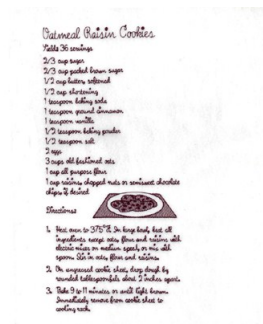 Oatmeal Raisin Cookies
Yields 36 servings
2/3 cup sugar
2/3 cup packed brown sugar
1/2 cup butter, softened
1/2 cup shortening
1 teaspoon baking soda
1 teaspoon ground cinnamon
1 teaspoon vanilla
1/2 teaspoon baking powder
1/2 teaspoon salt
2 eggs
3 cups old fashioned oats
1 cup all purpose flour
1 cup raisins, chopped nuts or semisweet chocolate
chips, if desired
Directions:
1. Heat oven to 375°F. In large bowl, beat all
ingredients except oats, flour and raisins with
electric mixer on medium speed, or mix with
spoon. Stir in oats, flour and raisins.
2. On ungreased cookie sheet, drop dough by
rounded tablespoonfuls about 2 inches apart.
3. Bake 9 to 11 minutes or until light brown.
Immediately remove from cookie sheet to
cooling rack.